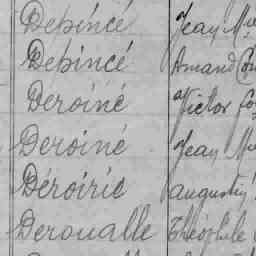 Depincé Jean M
Depincé Amand
Deroiné Victor
Deroiné Jean M
Déroiric augustin
Deroualle Théophile